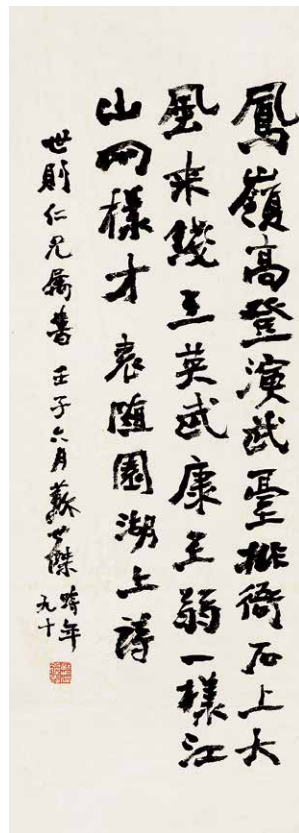 鳳嶺高登演武臺排衙石上大
風来錢王英武康王弱一樣江
山兩樣才 袁随園湖上詩
世則仁兄屬書 壬子六月蘇世傑時年
九十